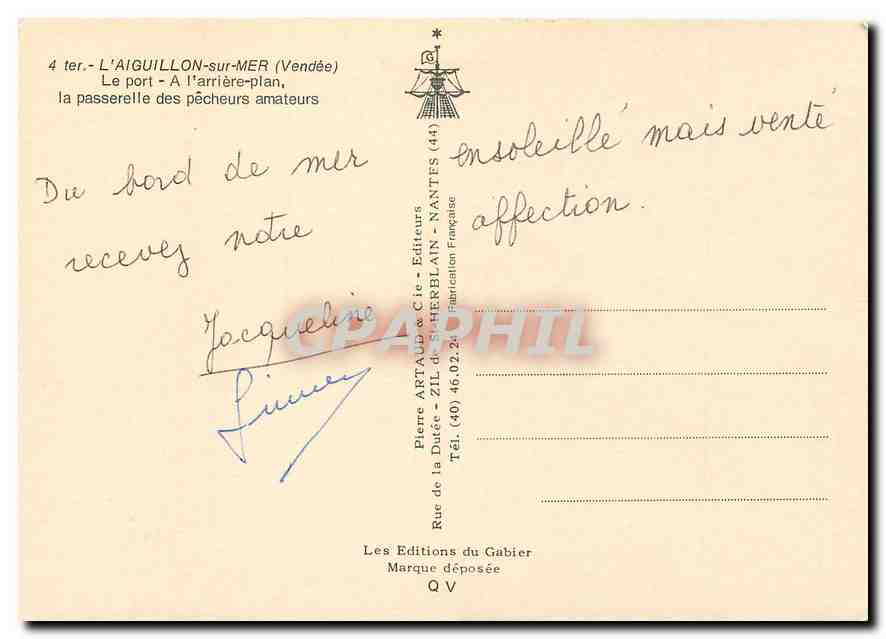 4 ter.- L'AIGUILLON-sur-MER (Vendée)
Le port - A l'arrière-plan,
la passerelle des pêcheurs amateurs
Du bord de mer ensoleillé mais venté
recevez notre affection.
Jacqueline
G
Pierre ARTAUD & Cie - Editeurs
Rue de la Dutée - ZIL de St-HERBLAIN - NANTES (44)
Tél. (40) 46.02.24 Fabrication Française
CPAPHIL
Les Editions du Gabier
Marque déposée
QV